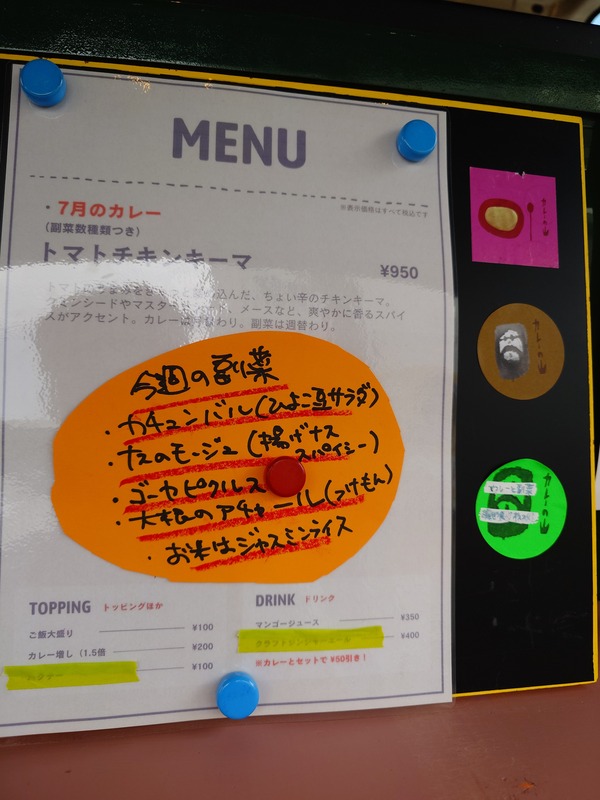 MENU
※表示価格はすべて税込です
・7月のカレー
(副菜数種類つき)
トマトチキンキーマ
¥950
込んだ、ちょい辛のチキンキーマ。
ミンシードやマスター ド、メースなど、爽やかに香るスパイ
スがアクセント。カレーは わり。副菜は週替わり。
今週の副菜
・カチュンバル(ひよこ豆サラダ)
・なすのモージュ(揚げナス
スパイシー)
・ゴーヤピクルス
・大根のアチャール(つけもん)
・お米はジャスミンライス
TOPPING トッピングほか
ご飯大盛り ¥100
カレー増し(1.5倍 ¥200
¥100
DRINK ドリンク
マンゴージュース ¥350
クラフトジンジャーエール ¥400
※カレーとセットで¥50引き!
カレーの山
カレーの山
カレーの山
カレーと副菜